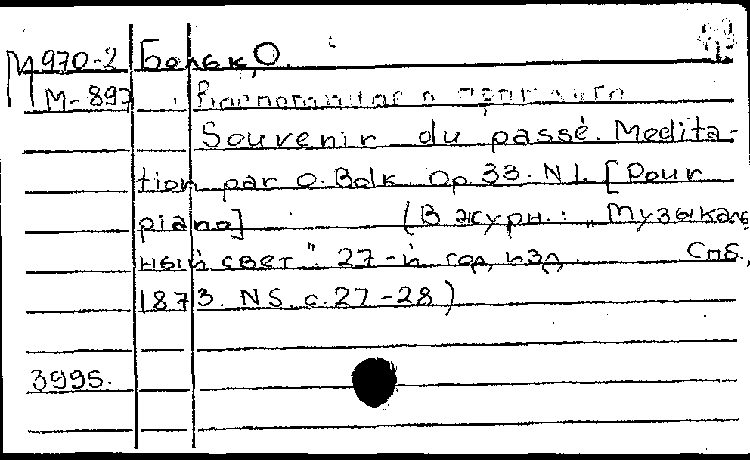 М 970-2 Больк, О.
М-897
Souvenir du passé. Medita-
tion par O. Bolk. Op. 33. N 1. [Pour
piano] (В журн.: „Музыкаль
ный свет". 27-й год, изд. Спб.,
1873. N 5. с. 27-28)
3995.